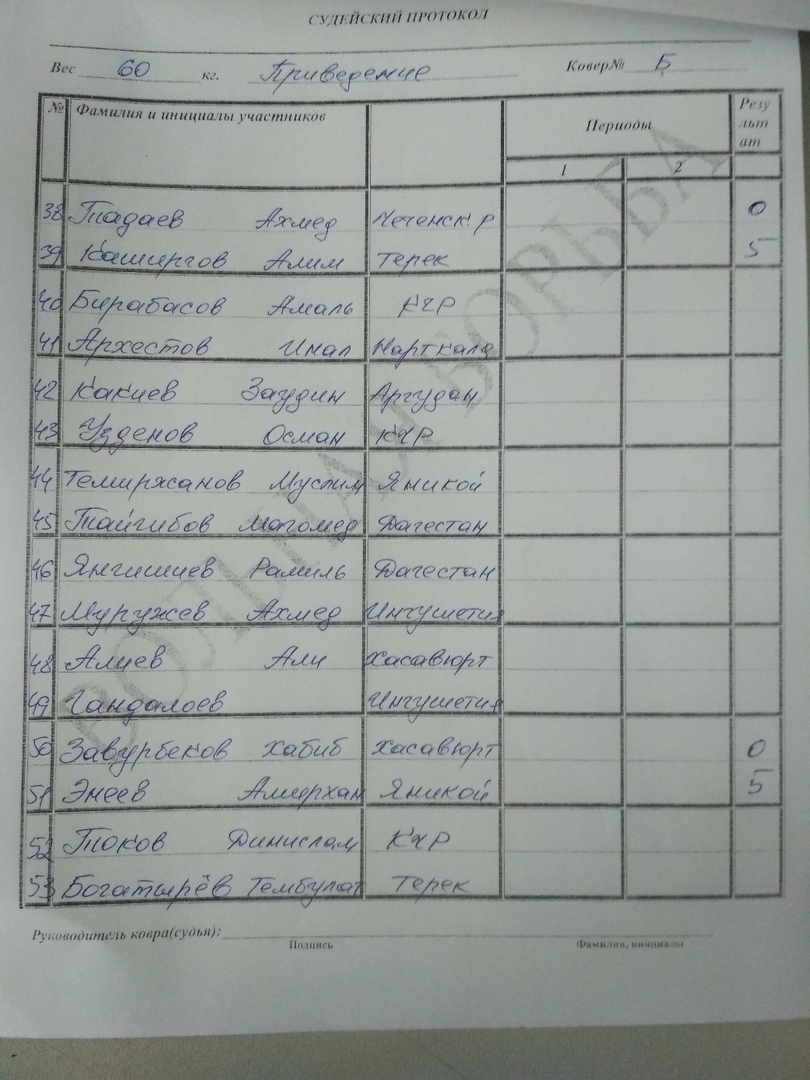 СУДЕЙСКИЙ ПРОТОКОЛ
Вес 60 кг. Приведение Ковер№ Б
№ Фамилия и инициалы участников Периоды Резу льт ат
1 2
38 Тадаев Ахмед Чеченск. Р 0
39 Каширгов Алим Терек 5
40 Бирабасов Амаль КЧР
41 Архестов Инал Нарткала
42 Какиев Заудин Аргудан
43 Узденов Осман КЧР
44 Темиржанов Муслим Яникой
45 Тайгибов Магомед Дагестан
46 Янгишиев Рамиль Дагестан
47 Муружев Ахмед Ингушетия
48 Алиев Али Хасавюрт
49 Гандалоев Ингушетия
50 Завурбеков Хабиб Хасавюрт 0
51 Энеев Амирхан Яникой 5
52 Токов Динислам КЧР
53 Богатырёв Тембулат Терек
Руководитель ковра(судья):
Подпись Фамилия, инициалы
ВОЛЬНАЯ БОРЬБА